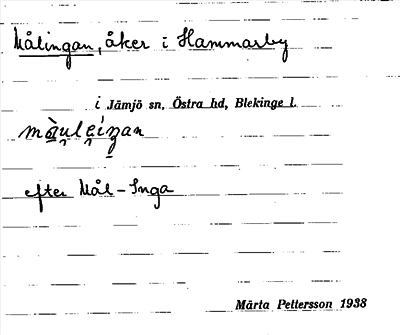 Målingan, åker i Hammarby
i Jämjö sn, Östra hd, Blekinge l.
efter Mål-Inga
Märta Pettersson 1938